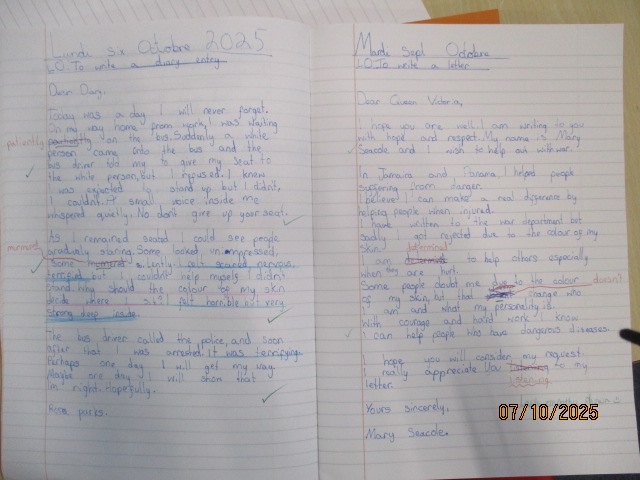 Lundi six Octobre 2025
LO To write a diary entry
Dear Diary,
Today was a day I will never forget.
On my way home from work, I was waiting
patiently on the bus. Suddenly a white
person came into the bus and the
bus driver told me to give my seat to
the white person, but I refused. I knew
I was expected to stand up but I didn't.
I couldn't. A small voice inside me
whispered quietly. No don't give up your seat.
As I remained seated I could see people
gradually staring. Some looked unimpressed,
Some silently. I felt scared, nervous,
terrified but I couldn't help myself. I didn't
stand. Why should the colour of my skin
decide where I sit? I felt horrible but very
strong deep inside.
The bus driver called the police, and soon
after that I was arrested. It was terrifying.
Perhaps one day I will get my way.
Maybe one day I will show that
I'm right. Hopefully.
Rosa parks.
Mardi Sept Octobre
LO To write a letter
Dear Queen Victoria,
I hope you are well. I am writing to you
with hope and respect. My name is Mary
Seacole and I wish to help out with war.
In Jamaica and Panama, I helped people
suffering from danger.
I believe I can make a real difference by
helping people when injured.
I have written to the war department but
sadly I got rejected due to the colour of my
skin. determined
I am to help others especially
when they are hurt.
Some people doubt me due to the colour doesn't
of my skin, but that change who
I am and what my personality is.
With courage and hard work I know
I can help people who have dangerous diseases.
I hope you will consider my request.
I really appreciate you to my
letter. listening
Yours sincerely,
Mary Seacole.
07/10/2025